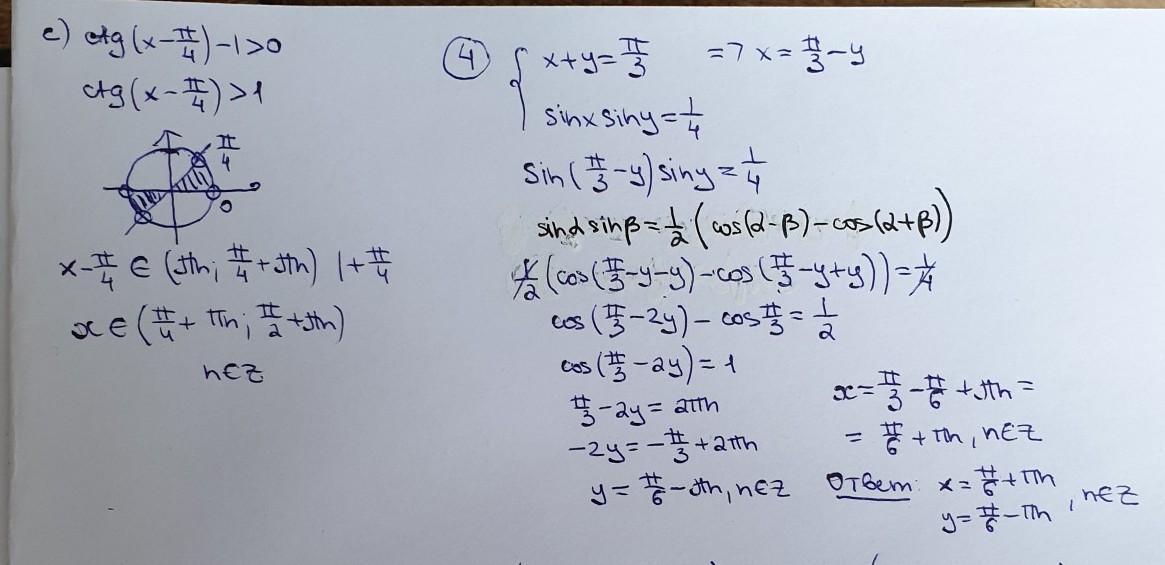 c) ctg(x-π/4)-1>0
ctg(x-π/4)>1
π/4
0
x-π/4 ∈ (πn; π/4+πn) |+π/4
x ∈ (π/4+πn; π/2+πn)
n∈Z
④ { x+y=π/3 => x=π/3-y
sinx siny=1/4
sin(π/3-y)siny=1/4
sinα sinβ=1/2(cos(α-β)-cos(α+β))
1/2(cos(π/3-y-y)-cos(π/3-y+y))=1/4
cos(π/3-2y)-cos π/3=1/2
cos(π/3-2y)=1
π/3-2y=2πn
-2y=-π/3+2πn
y=π/6-πn, n∈Z
x=π/3-π/6+πn=
=π/6+πn, n∈Z
Ответ: x=π/6+πn
y=π/6-πn , n∈Z